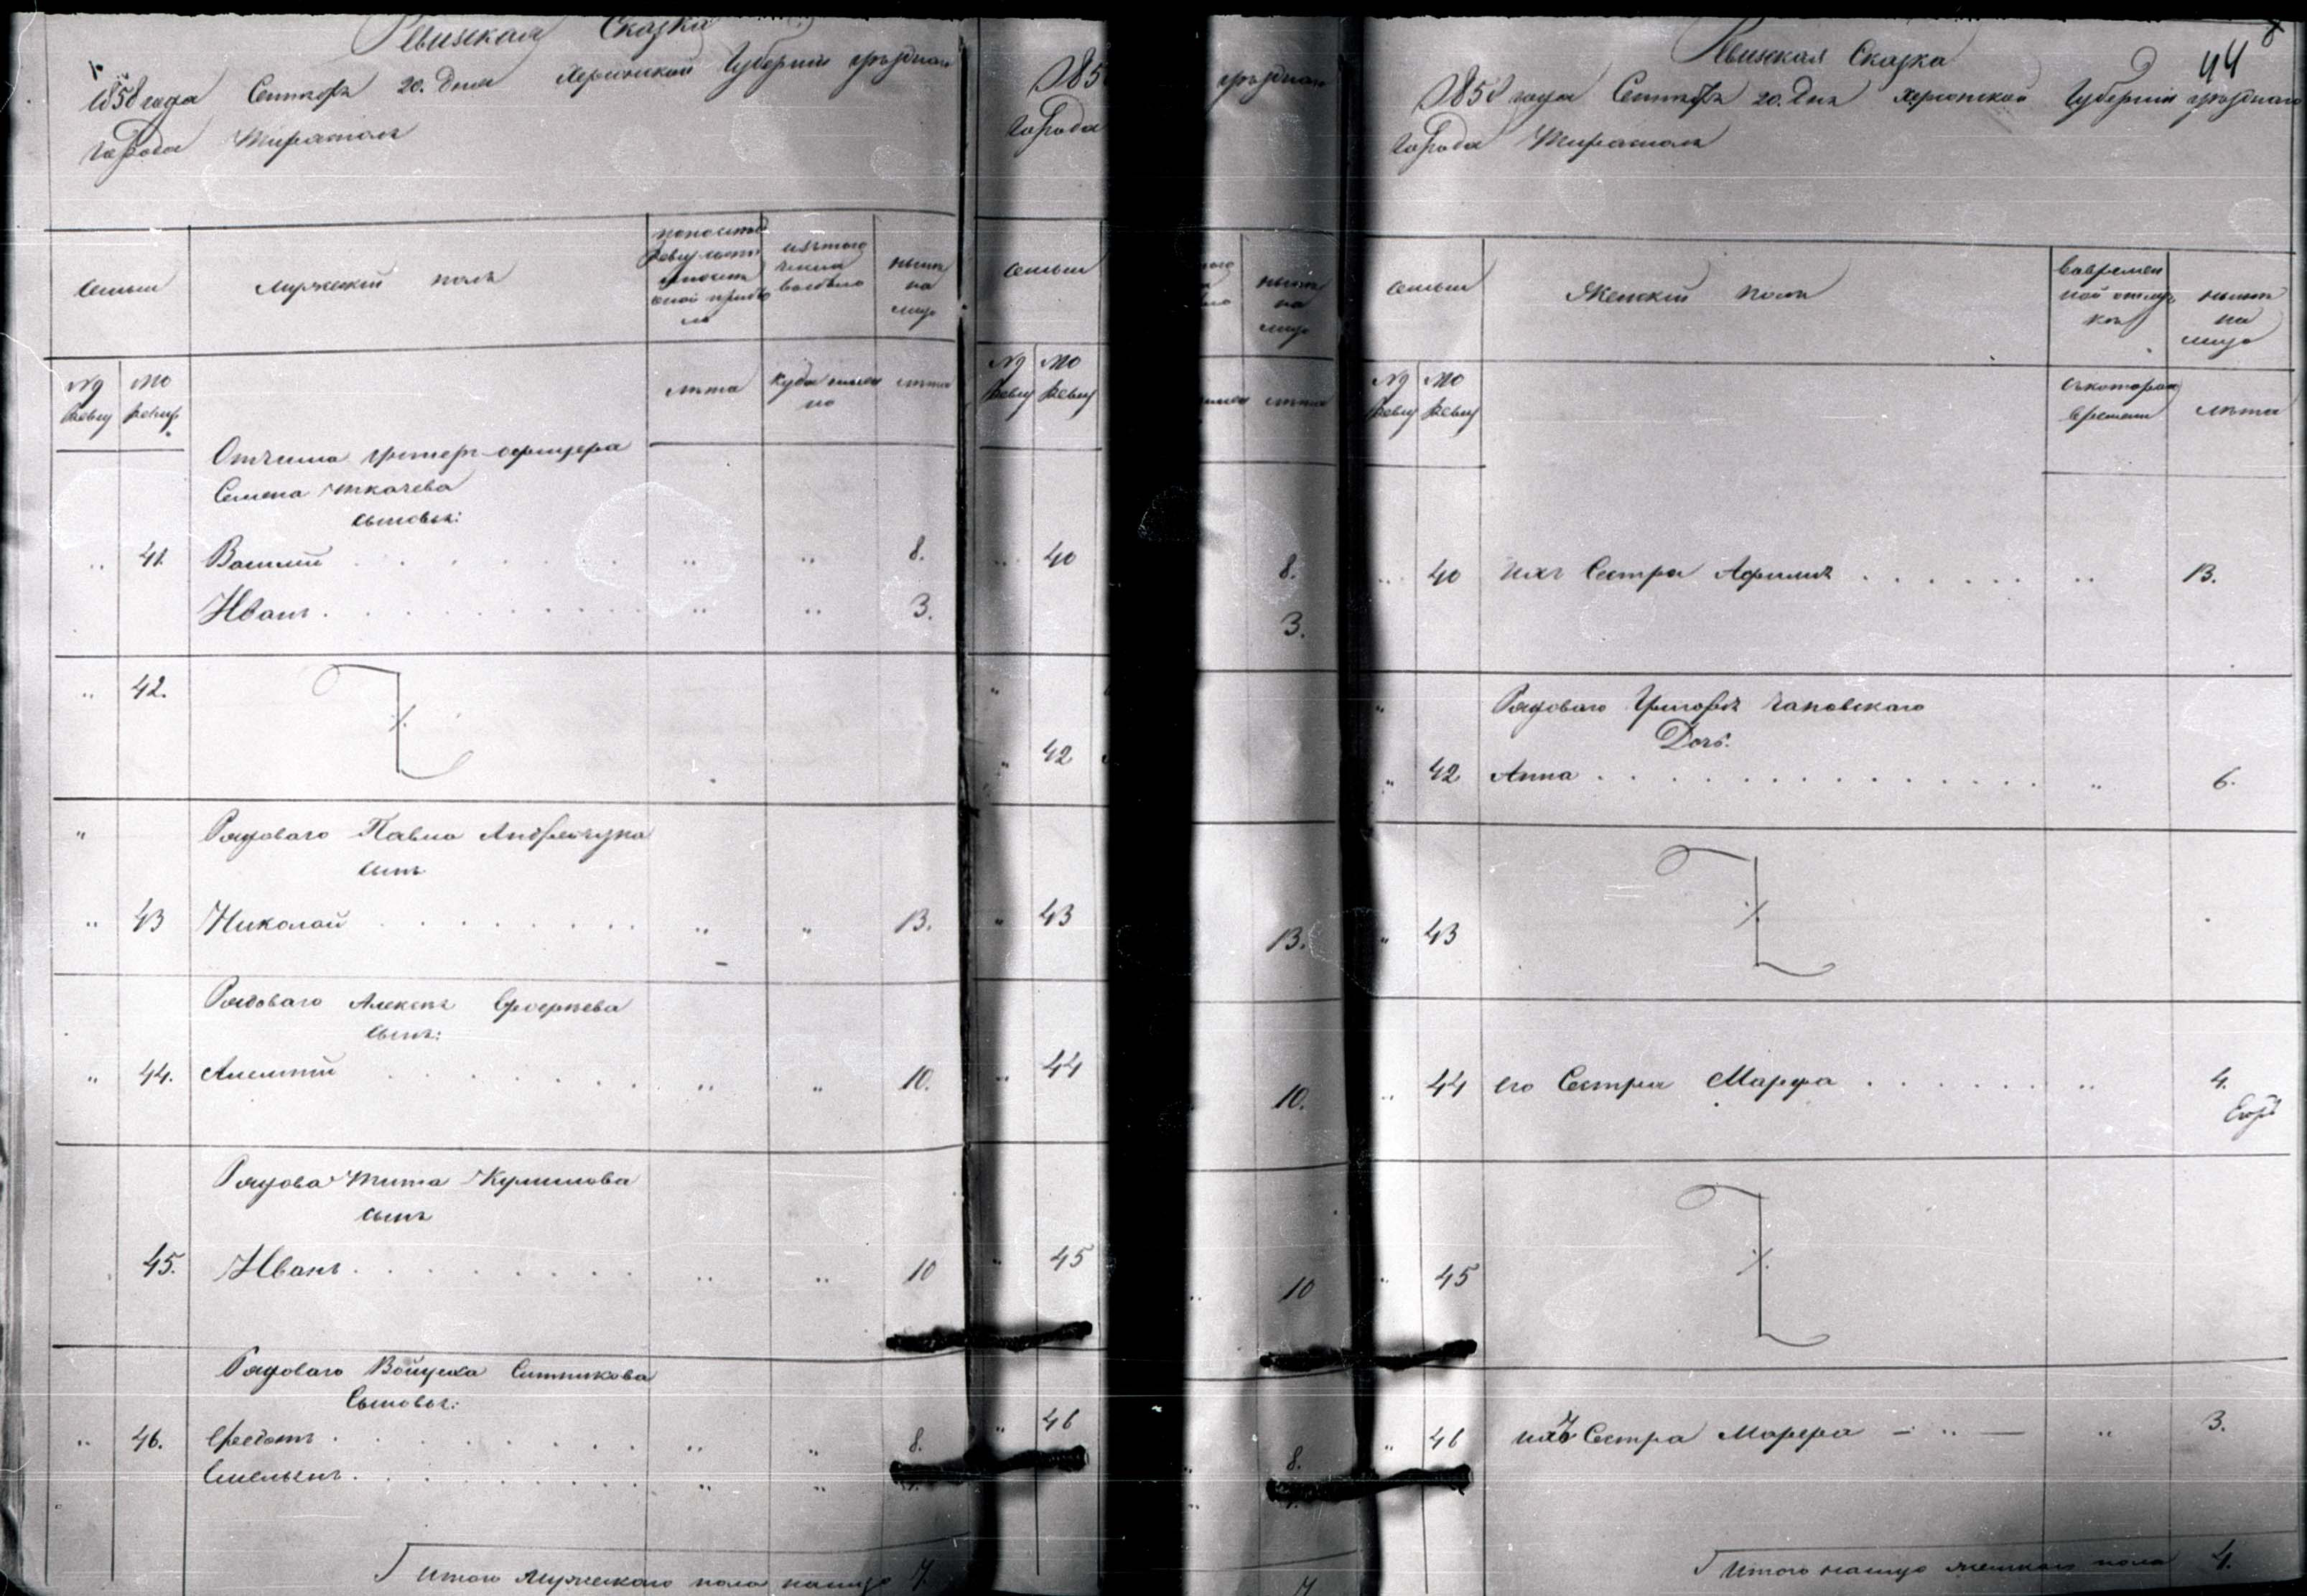 Ревизская Сказка
1858 года Сентября 20. дня Херсонской Губернии уѣзднаго
города Тирасполя
семьи
мужескій полъ
изъ того числа выбыло
нынѣ на лицо
№ ревиз
по ревиз
лѣта
куда именно
лѣта
Отчима унтеръ-офицера
Семена Ткачева
сыновья:
41. Василій . . . . . . „ „ 8.
Иванъ . . . . . . . „ „ 3.
„ 42.
„ Рядоваго Павла Андрейчука
сынъ
„ 43 Николай . . . . . . „ „ 13.
Рядоваго Алексѣя
сынъ:
„ 44. . . . . . . „ „ 10.
Рядова Тита Куликова
сынъ
45. Иванъ . . . . . . „ „ 10
Рядоваго Ситникова
Сыновья:
„ 46. Ѳедотъ . . . . . . „ „ 8.
Емельянъ . . . . . . „ „
Итого мужескаго пола налицо 7
185
города
семьи
№ ревиз
по ревиз
40
„ 42
„ 43
„ 44
„ 45
„ 46
уѣзднаго
нынѣ на лицо
лѣта
8.
3.
13.
10.
10
8.
7
44
Ревизская Сказка
1858 года Сентября 20. дня Херсонской Губерніи уѣзднаго
города Тирасполя
семьи
Женскій полъ
во времен
ной отлуч
кѣ
нынѣ
на
лицо
№ ревиз
по ревиз
съ котораго
времени
лѣта
„ 40 ихъ Сестра Афимія . . . . . . „ 13.
„ Рядоваго Григорія Чаповскаго
Дочь:
„ 42 Анна . . . . . . . . „ 6.
„ 43
„ 44 его Сестра Марфа . . . . . . „ 4.
„ 45
„ 46 ихъ Сестра Марфа — „ — „ 3.
Итого налицо женскаго пола 4.